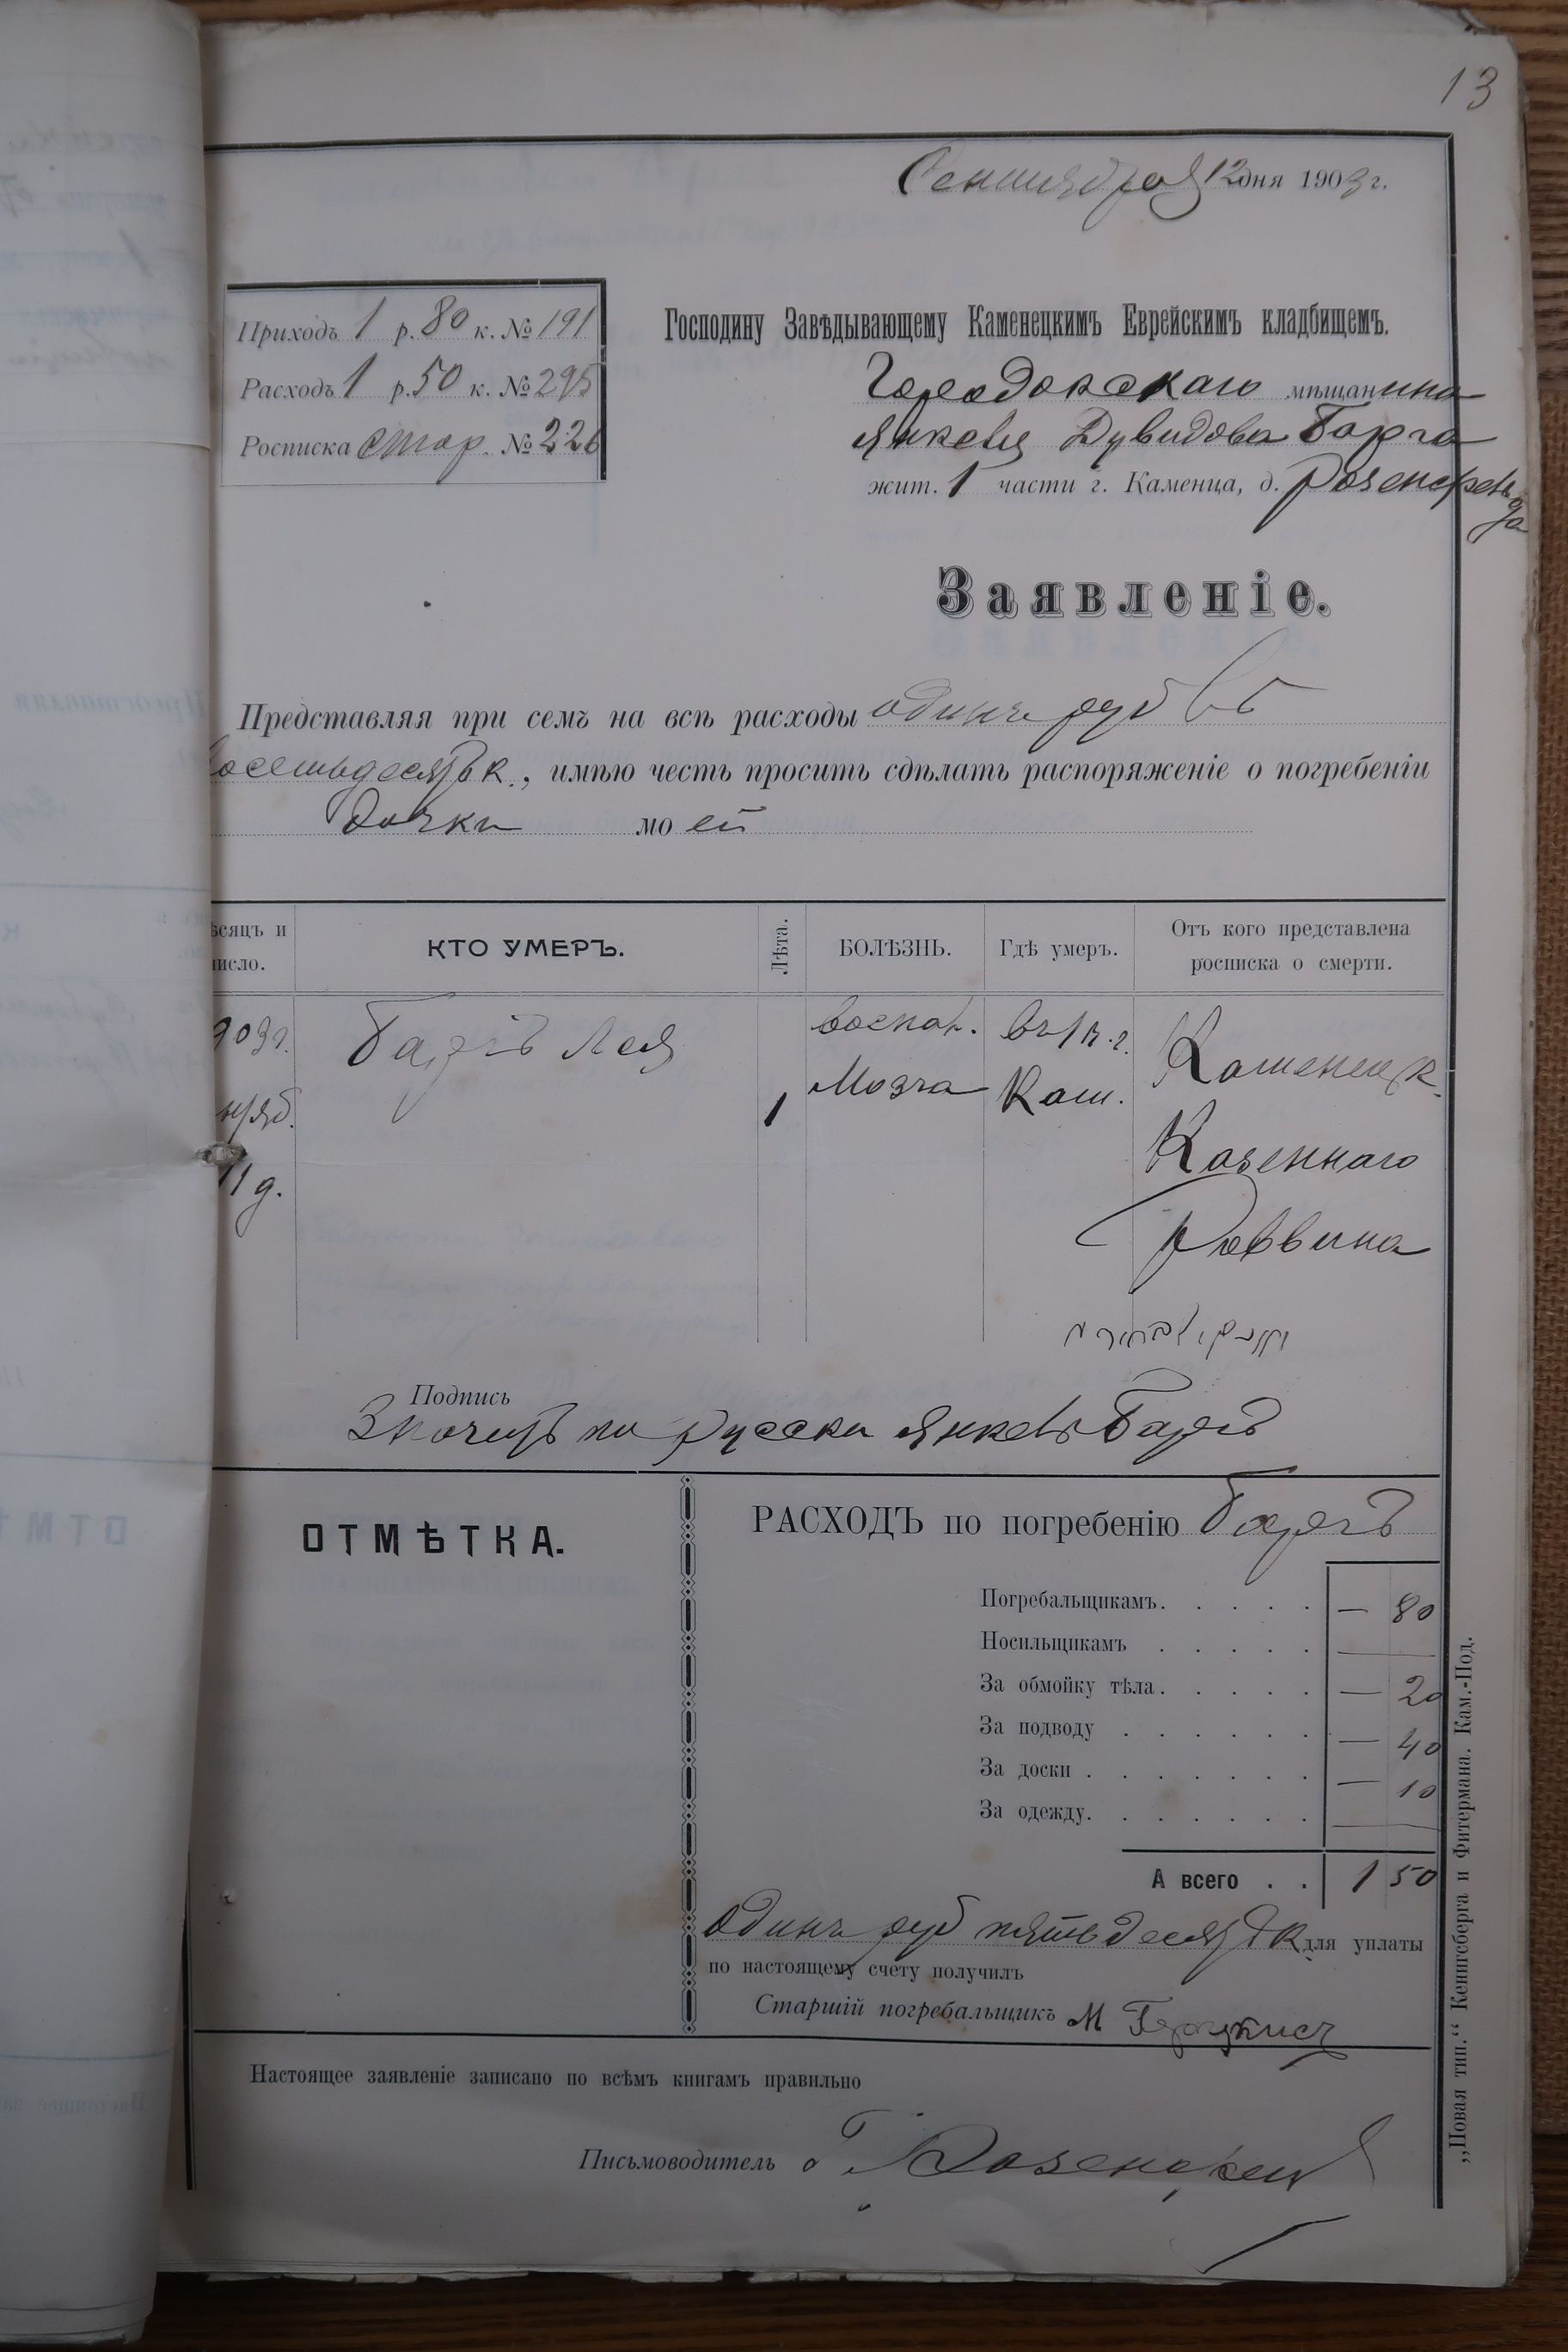 13
Сентября 12 дня 1903 г.
Приходъ 1 р. 80 к. № 191
Расходъ 1 р. 50 к. № 295
Росписка стор. № 226
Господину Завѣдывающему Каменецкимъ Еврейскимъ кладбищемъ.
Городокскаго мѣщанина
Янкеля Дувидова Барга
жит. 1 части г. Каменца, д. Розенфельда
Заявленіе.
Представляя при семъ на всѣ расходы одинъ руб
восемьдесятъ к., имѣю честь просить сдѣлать распоряженіе о погребеніи
дочки моей
ѣсяцъ и число.
КТО УМЕРЪ.
Лѣта.
БОЛѢЗНЬ.
Гдѣ умеръ.
Отъ кого представлена росписка о смерти.
903г.
11 д.
Баргъ Лея
1
воспал.
Мозга
въ 1 ч. г.
Кам.
Каменецк.
Казеннаго
Раввина
Подпись
Значитъ по русски Янкель Баргъ
ОТМѢТКА.
РАСХОДЪ по погребенію Баргъ
Погребальщикамъ. . . . . — 80
Носильщикамъ . . . . . —
За обмойку тѣла. . . . . — 20
За подводу . . . . . . — 40
За доски . . . . . . . — 10
За одежду. . . . . . . —
А всего . . 1 50
одинъ руб пятьдесятъ к для уплаты
по настоящему счету получилъ
Старшій погребальщикъ М
Настоящее заявленіе записано по всѣмъ книгамъ правильно
Письмоводитель Г.
„Новая тип.“ Кенигсберга и Фитермана. Кам.-Под.